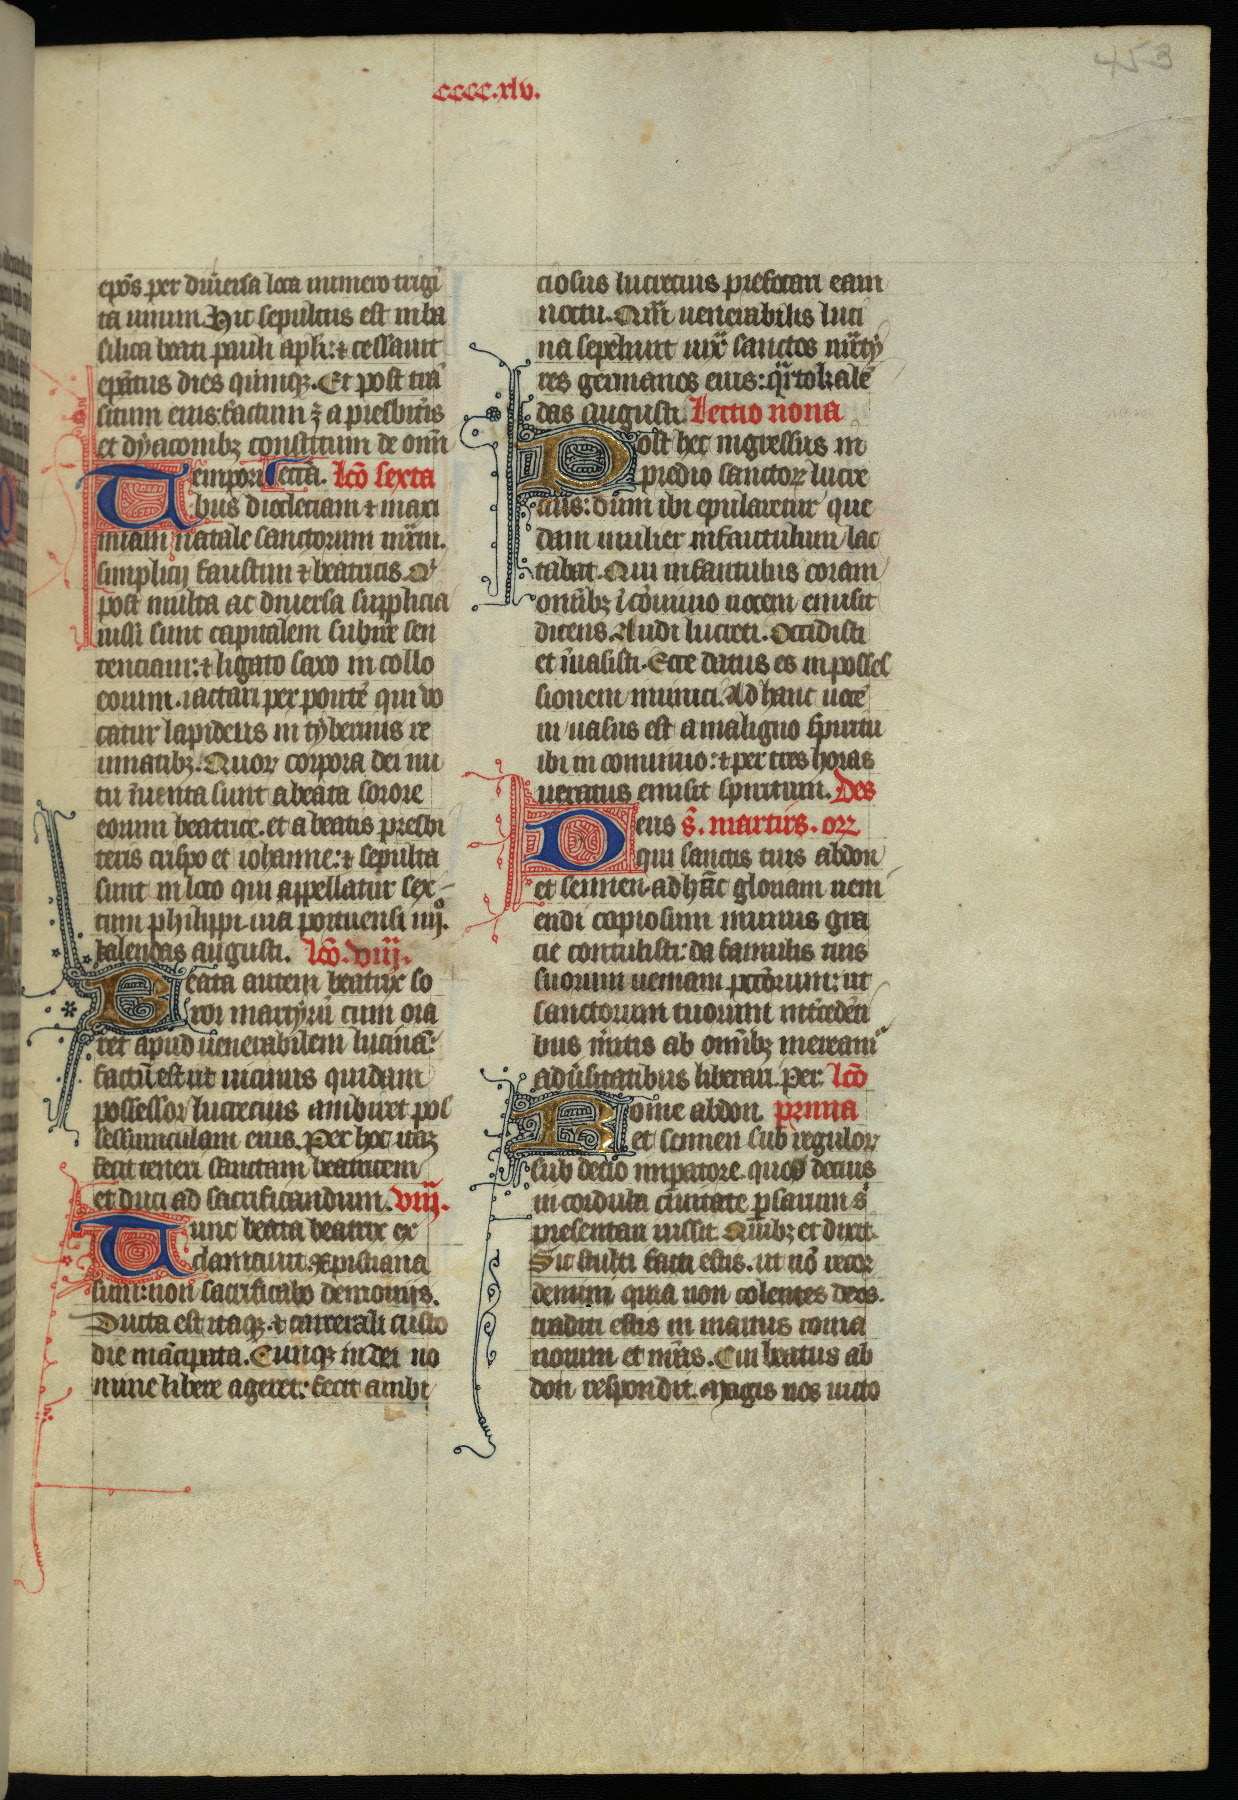 453
cccc.xlv.
epo̅s per diuersa loca numero trigi̅
ta unum. Hic sepultus est in ba
silica beati pauli apli: ⁊ cessauit
epa̅tus dies quinqꝫ. Et post tra̅
situm eius factum ꝫ a presbit̅is
et dyaconibꝫ constitum de omi̅
Tempori cetta. lco̅ sexta
bus diocleciani ⁊ maxi
miani natale sanctorum mr̅m.
simplicij faustini ⁊ beatricis. Q̇
post multa ac diuersa supplicia
iussi sunt capitalem subire sen
tenciam: ⁊ ligato saxo in collo
eorum. iactari per ponte̅ qui uo
catur lapideus in tyberinis re
umatibꝫ. Quoꝝ corpora dei nu
tu i̅uenta sunt a beata sorore
eorum beatrice. et a beatis presbi
teris crispo et iohanne: ⁊ sepulta
sunt in loco qui appellatur sex
tum philippi. uia portuensi iiijo.
kalendas augusti. lco̅. viij.
Beata autem beatrix so
ror martyru̅ cum ora
ret apud uenerabilem lucina̅:
factu̅ est ut uicinus quidam
possessor lucrecius ambiret pos
sessiunculam eius. Per hoc itaqꝫ
fecit teneri sanctam beatricem
et duci ad sacrificandum. viij.
Tunc beata beatrix ex
clamauit. Xpistiana
sum: non sacrificabo demoniis.
Ducta est itaqꝫ. ⁊ carcerali custo
die ma̅cipata. Cunqꝫ in dei no
mine libere ageret: fecit ambi
ciosus lucrecius prefocari eam
noctu. Qua̅ uenerabilis luci
na sepeliuit iux̅ sanctos mr̅ty
res germanos eius: qr̅to kale̅
das augusti. Lectio nona
Post hec ingressus in
predio sanctoꝝ lucre
cius: dum ibi epularetur que
dam mulier infantulum lac
tabat. Qui infantulus coram
omi̅bꝫ i̅ co̅uiuio uocem emisit
dicens. Audi lucreci. Occidisti
et i̅uasisti. Ecce datus es in posses
sionem inimici. Ad hanc uoce̅
in uasus est a maligno spiritu
ibi in conuiuio: ⁊ per tres horas
uexatus emisit spiritum. Des
Deus s̅. martirs. orꝝ
qui sanctis tuis abdon
et sennen. ad ha̅c gloriam ueni
endi copiosum munus gra
cie contulisti: da famulis tuis
suorum ueniam pcc̅orum: ut
sanctorum tuorum int̅cede̅ti
bus m̅itis ab omi̅bꝫ meream̃
adu̅sitatibus liberari. Per. lco̅
Rome abdon. prima
et sennen sub reguloꝝ
sub decio imperatore. quos decius
in cordula ciuitate p̅sarum s̅
presentari iussit. Quibꝫ et dixit.
Sic stulti facti estis. ut no̅ recor
demini quia non colentes deos.
traditi estis in manus roma
norum et n̅ras. Cui beatus ab
don respondit. Magis nos uicto